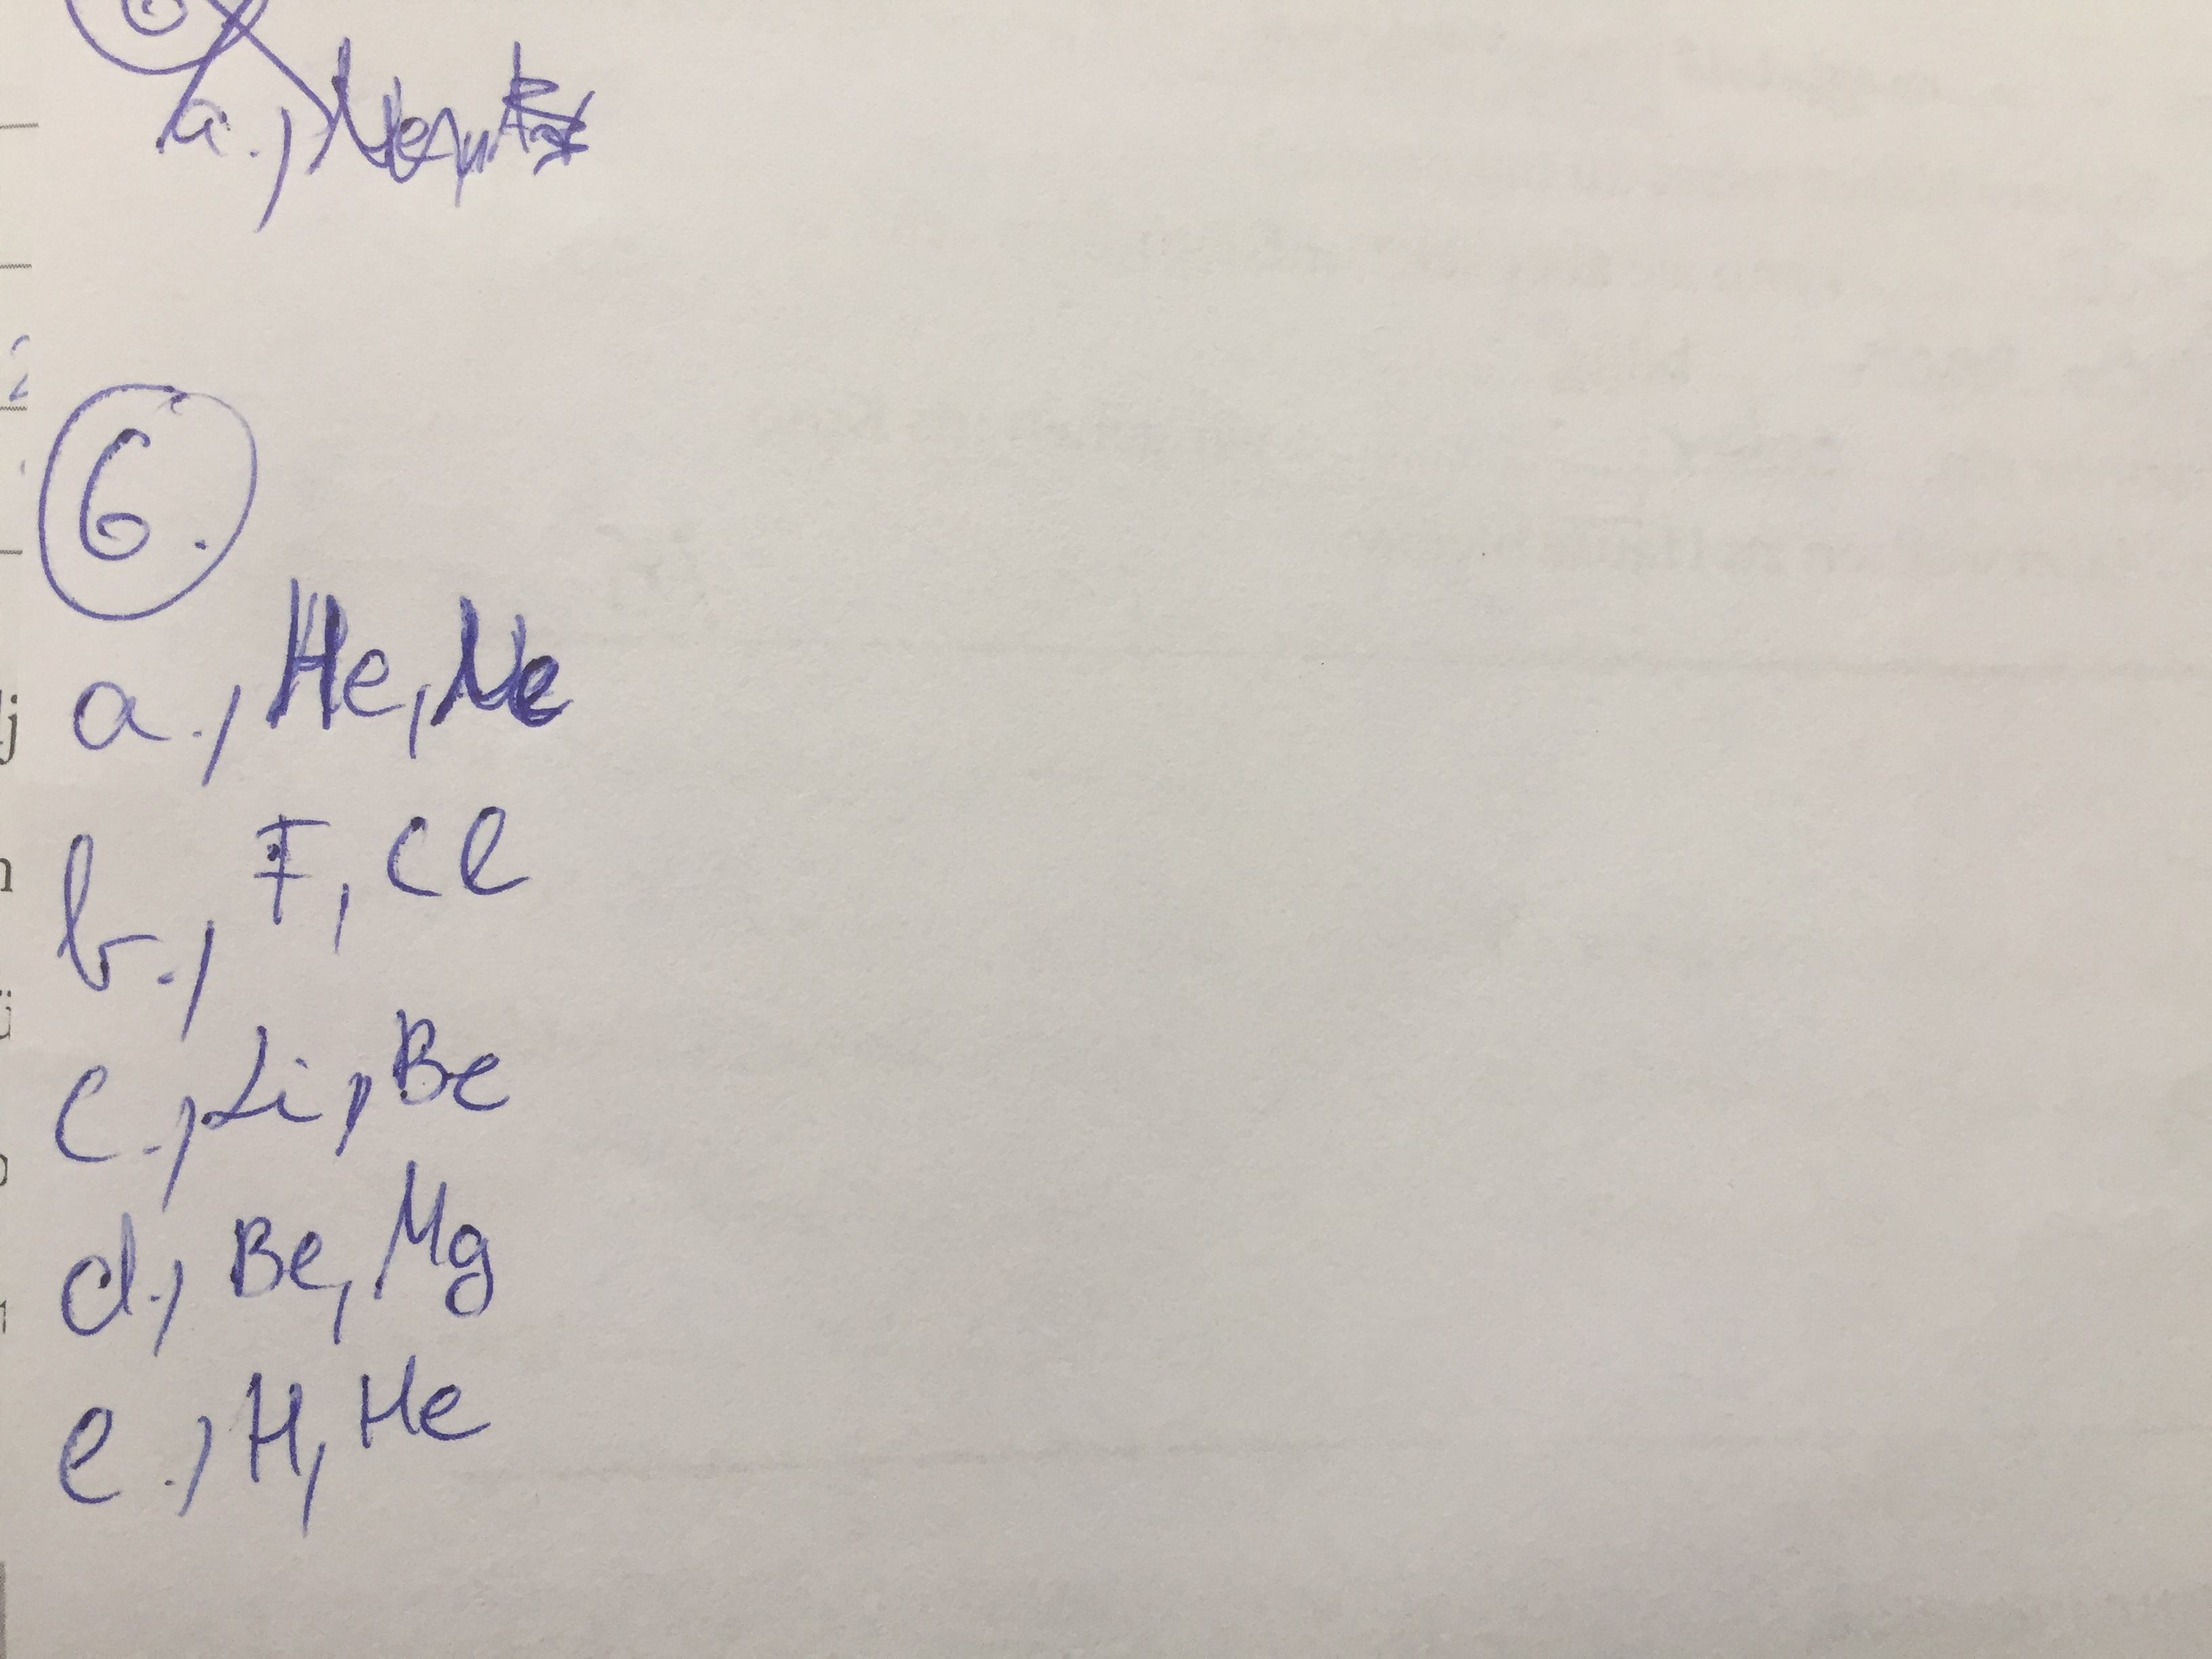 6.
a.,
6.
a., He, Ne
b., F, Cl
c., Li, Be
d., Be, Mg
e., H, He